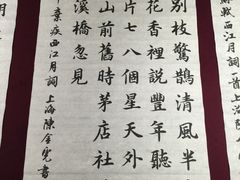 軾西江月詞一首上海
別枝驚鵲清風半
花香裡說豐年聽
片七八個星天外
山前舊時茅店社
溪橋忽見
棄疾西江月詞上海陳金書